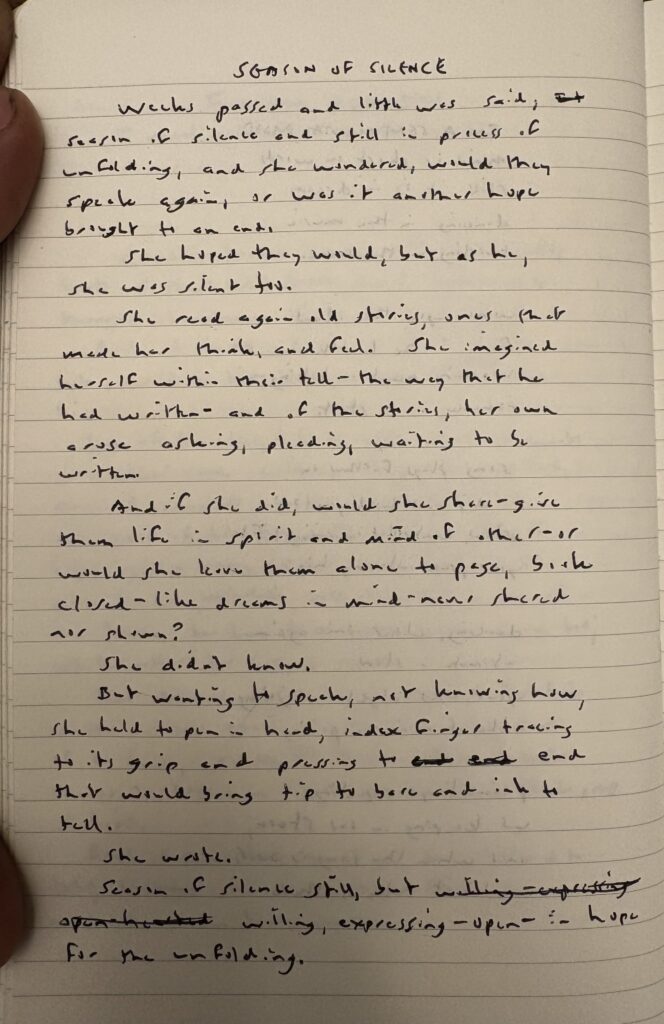 SEASON OF SILENCE
Weeks passed and little was said,
season of silence and still in process of
unfolding, and she wondered, would they
speak again, or was it another hope
brought to an end.
She hoped they would, but as he,
she was silent too.
She read again old stories, ones that
made her think, and feel. She imagined
herself within their tell - the way that he
had written - and of the stories, her own
arose asking, pleading, waiting to be
written.
And if she did, would she share - give
them life in spirit and mind of other - or
would she leave them alone to page, book
closed - like dreams in mind - never shared
nor shown?
She didn't know.
But wanting to speak, not knowing how,
she held to pen in hand, index finger tracing
to its grip and pressing to and end end
that would bring tip to bare and ink to
tell.
She wrote.
Season of silence still, but willing - expressing
open-hearted willing, expressing - open - in hope
for the unfolding.